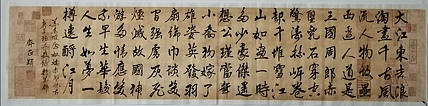 大江東去浪
淘盡千古風
流人物故壘
西邊人道是
三國周郎赤
壁亂石穿空
驚濤拍岸卷
起千堆雪江
山如畫一時
多少豪傑遙
想公瑾當年
小喬初嫁了
雄姿英發羽
扇綸巾談笑
間強虜灰飛
煙滅故國神
遊多情應笑
我早生華髮
人生如夢一
樽還酹江月